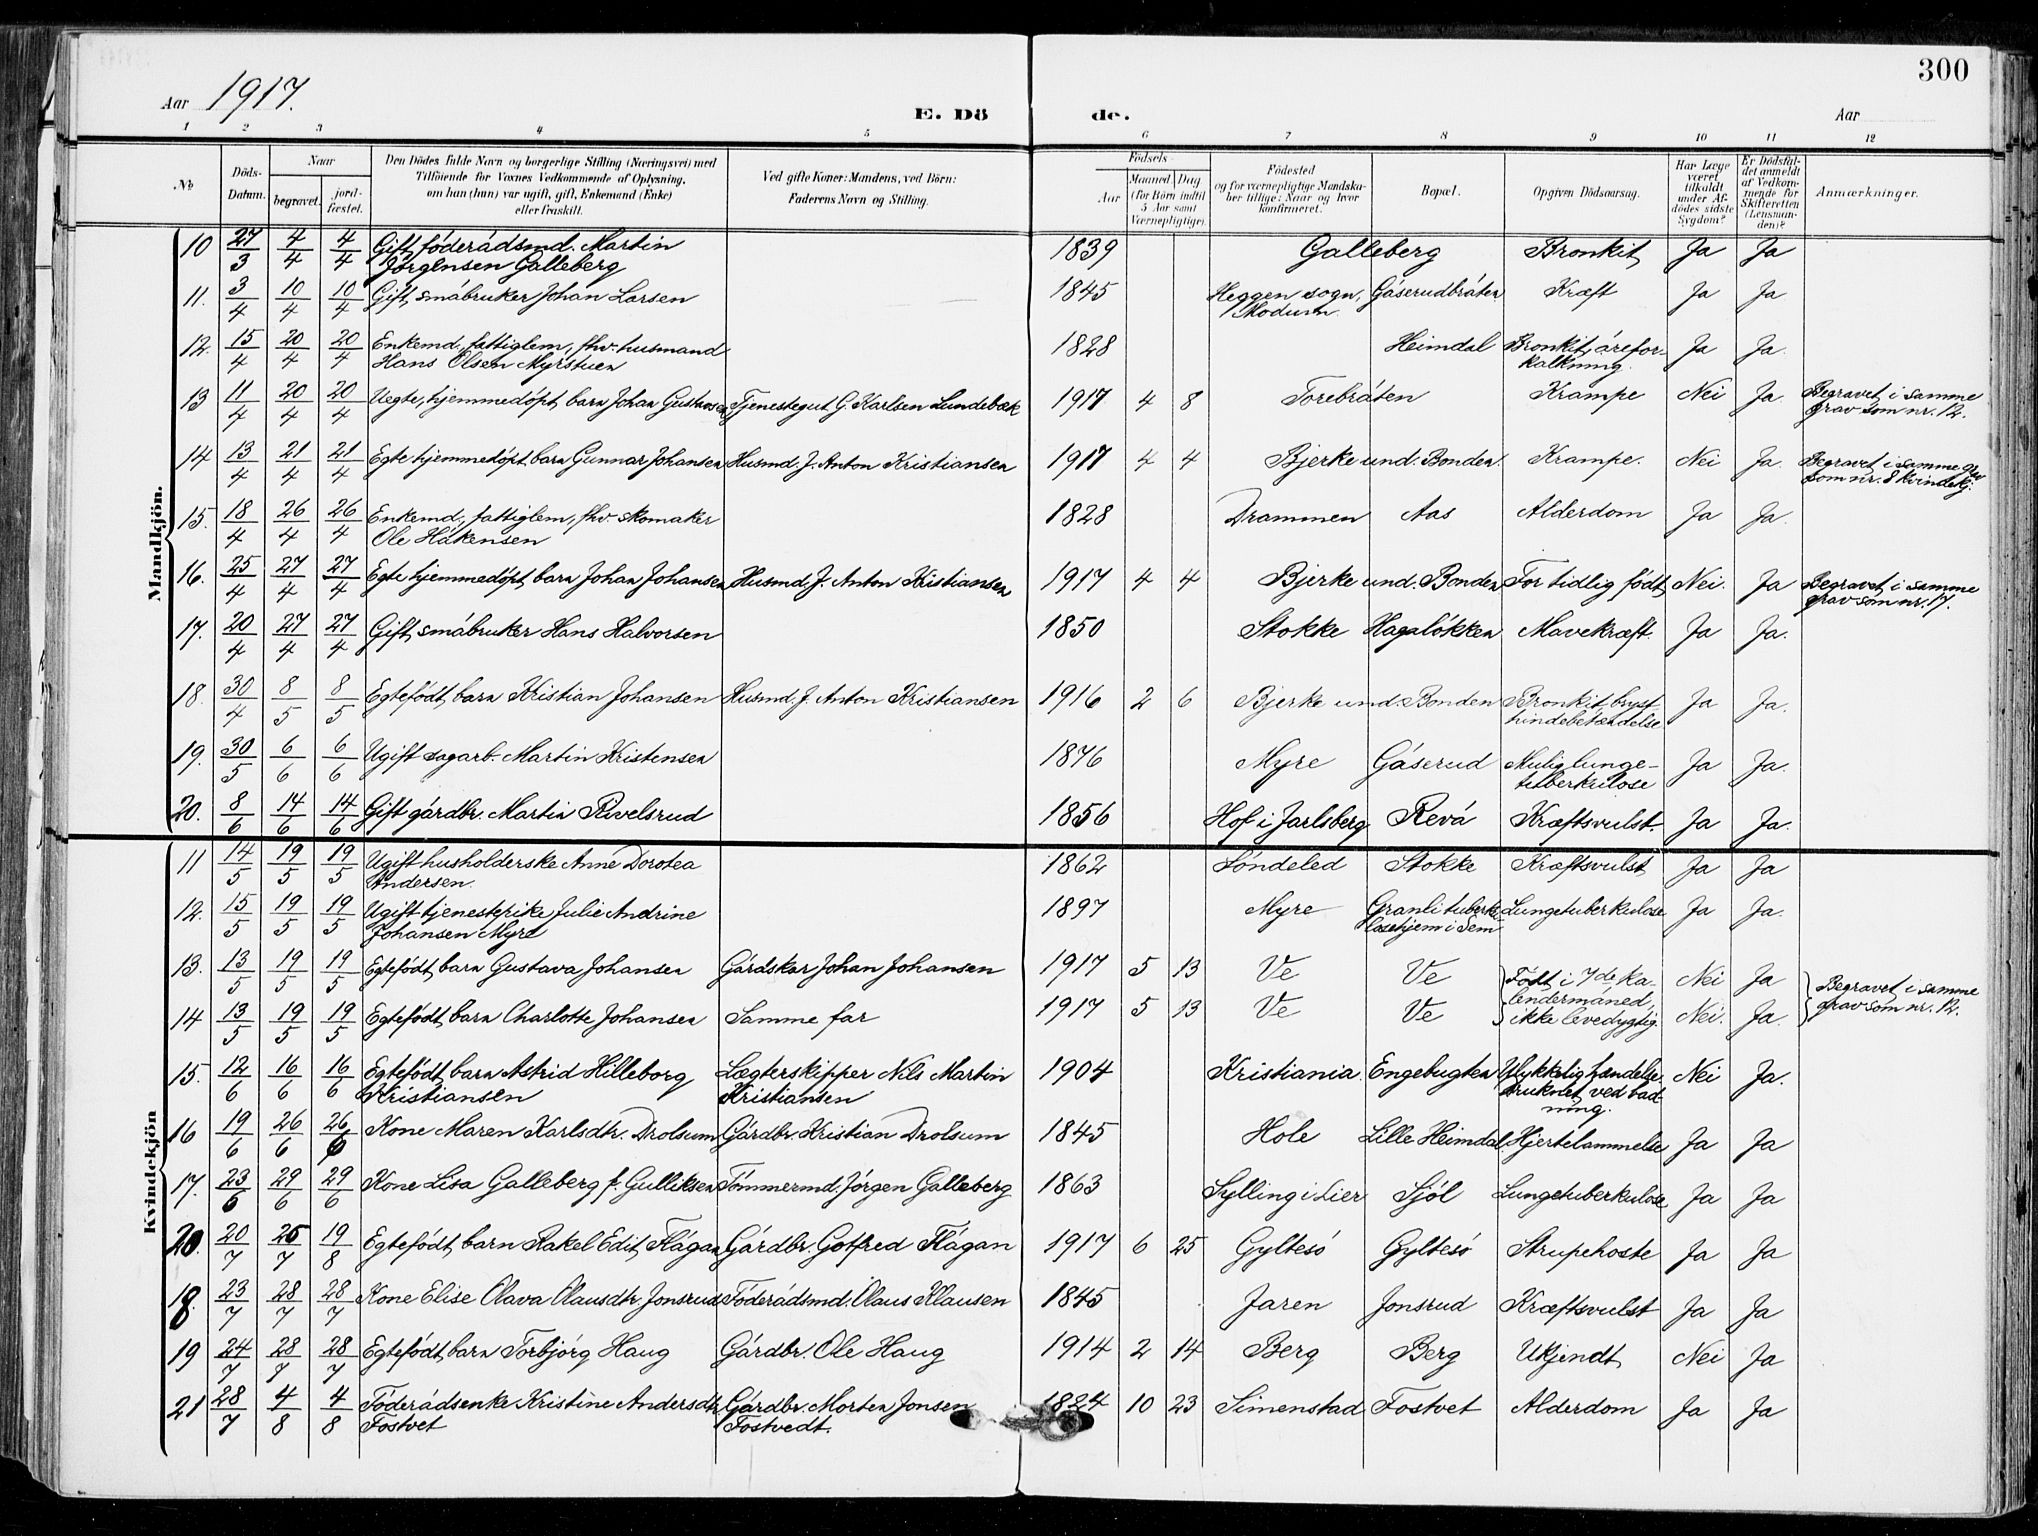 300
Aar 1917.
E. Dö de.
Aar
1 2 3 4 5 6 7 8 9 10 11 12
No
Döds-Datum.
Naar
begravet.
jord-fæstet.
Den Dödes fulde Navn og borgerlige Stilling (Næringsvei) med
Tilföiende for Voxnes Vedkommende af Oplysning,
om han (hun) var ugift, gift, Enkemand (Enke)
eller fraskilt.
Ved gifte Koner: Mandens, ved Börn:
Faderens Navn og Stilling.
Födsels-
Aar
Maaned Dag
(for Börn indtil
5 Aar samt
Værnepligtige).
Födested
og for værnepligtige Mandska-
ber tillige: Naar og hvor
konfirmeret.
Bopæl.
Opgiven Dödsaarsag.
Har Læge
været
tilkaldt
under Af-
dödes sidste
Sygdom?
Er Dödsfal-
det anmeldt
af Vedkom-
mende for
Skifteretten
(Lensman-
den)?
Anmærkninger.
Mandkjön.
10 27/3 4/4 4/4 Gift föderådsmd. Martin 1839 Galleberg Bronkit Ja Ja
Jörgensen Galleberg
11. 3/4 10/4 10/4 Gift, småbruker Johan Larsen 1845 Heggen sogn, Gåserudbråten Kræft Ja Ja
Modum
12. 15/4 20/4 20/4 Enkemd., fattiglem, fhv. husmand 1828 Heimdal Bronkit, årefor- Ja Ja.
Hans Olsen Myrstuen kalkning.
13 11/4 20/4 20/4 Uegte, hjemmedöpt barn Johan Gustavsen Tjenestegut G. Karlsen Lundebæk 1917 4 8 Torebråten Krampe Nei Ja. Begravet i samme
grav som nr. 12.
14 13/4 21/4 21/4 Egte hjemmedöpt barn Gunnar Johansen Husmd. J. Anton Kristiansen 1917 4 4 Bjerke und. Bonden. Krampe. Nei Ja. Begravet i samme grav
som nr. 8 kvindekj.
15. 18/4 26/4 26/4 Enkemd., fattiglem, fhv. skomaker 1828 Drammen Aas Alderdom Ja Ja.
Ole Håkensen
16. 25/4 27/4 27/4 Egte hjemmedöpt barn Johan Johansen Husmd. J. Anton Kristiansen 1917 4 4 Bjerke und. Bonden For tidlig födt Nei. Ja Begravet i samme
grav som nr. 17.
17. 20/4 27/4 27/4 Gift, småbruker Hans Halvorsen 1850 Stokke Hagalökken Mavekræft. Ja Ja.
18. 30/4 8/5 8/5 Egtefödt barn Kristian Johansen Husmd. J. Anton Kristiansen 1916 2 6 Bjerke und. Bonden Bronkit, bryst- Ja Ja.
hindebetændelse
19. 30/5 6/6 6/6 Ugift sagarb. Martin Kristensen 1876 Myre Gåserud Mulig lunge- Ja Ja.
tuberkulose
20. 8/6 14/6 14/6 Gift gårdbr. Martin Rivelsrud 1856 Hof i Jarlsberg Revå Kræftsvulst. Ja Ja.
Kvindekjön
11 14/5 19/5 19/5 Ugift husholderske Anne Dorotea 1862 Söndeled Stokke Kræftsvulst Ja Ja
Andersen.
12. 15/5 19/5 19/5 Ugift tjenestepike Julie Andrine 1897 Myre Granli tuberku- Lungetuberkulose Ja Ja.
Johansen Myre losehjem i Sem
13. 13/5 19/5 19/5 Egtefödt barn Gustava Johansen Gårdskar Johan Johansen 1917 5 13 Ve Ve Födt i 7de ka- Nei Ja Begravet i samme
14 13/5 19/5 19/5 Egtefödt barn Charlotte Johansen Samme far 1917 5 13 Ve Ve lendermåned, Nei. Ja. grav som nr. 12.
ikke levedygtig.
15. 12/6 16/6 16/6 Egtefödt barn Astrid Hilleborg Lægterskipper Nils Martin 1904 Kristiania. Engebugten Ulykkelig hændelse. Nei Ja.
Kristiansen Kristiansen Druknet ved bad-
ning.
16 19/6 26/6 26/6 Kone Maren Karlsdtr. Drolsum Gårdbr. Kristian Drolsum 1845 Hole Lille Heimdal. Hjertelammelse Ja Ja
17. 23/6 29/6 29/6 Kone Lisa Galleberg f. Gulliksen Tömmermd. Jörgen Galleberg 1863 Sylling i Lier Sjöl Lungetuberkulose Ja Ja
20. 20/7 26/7 19/8 Egtefödt barn Rakel Edit Flågan Gårdbr. Gotfred Flågan 1917 6 25 Gyltesö Gyltesö Strupehoste Ja Ja
18. 23/7 28/7 28/7 Kone Elise Olava Olausdtr. Jonsrud Föderådsmd. Olaus Klausen 1845 Jaren Jonsrud Kræftsvulst Ja Ja
19 24/7 28/7 28/7 Egtefödt barn Torbjörg Haug Gårdbr. Ole Haug 1914 2 14 Berg Berg Ukjendt Nei Ja
21 28/7 4/8 4/8 Föderådsenke Kristine Andersdtr. Gårdbr. Morten Jonsen 1824 10 23 Simenstad Fostvet Alderdom Ja Ja
Fostvet Fostvedt.